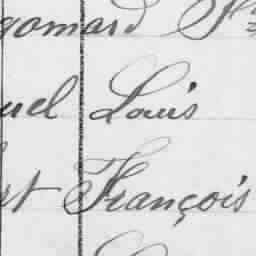 gomard
uel Louis
rt François